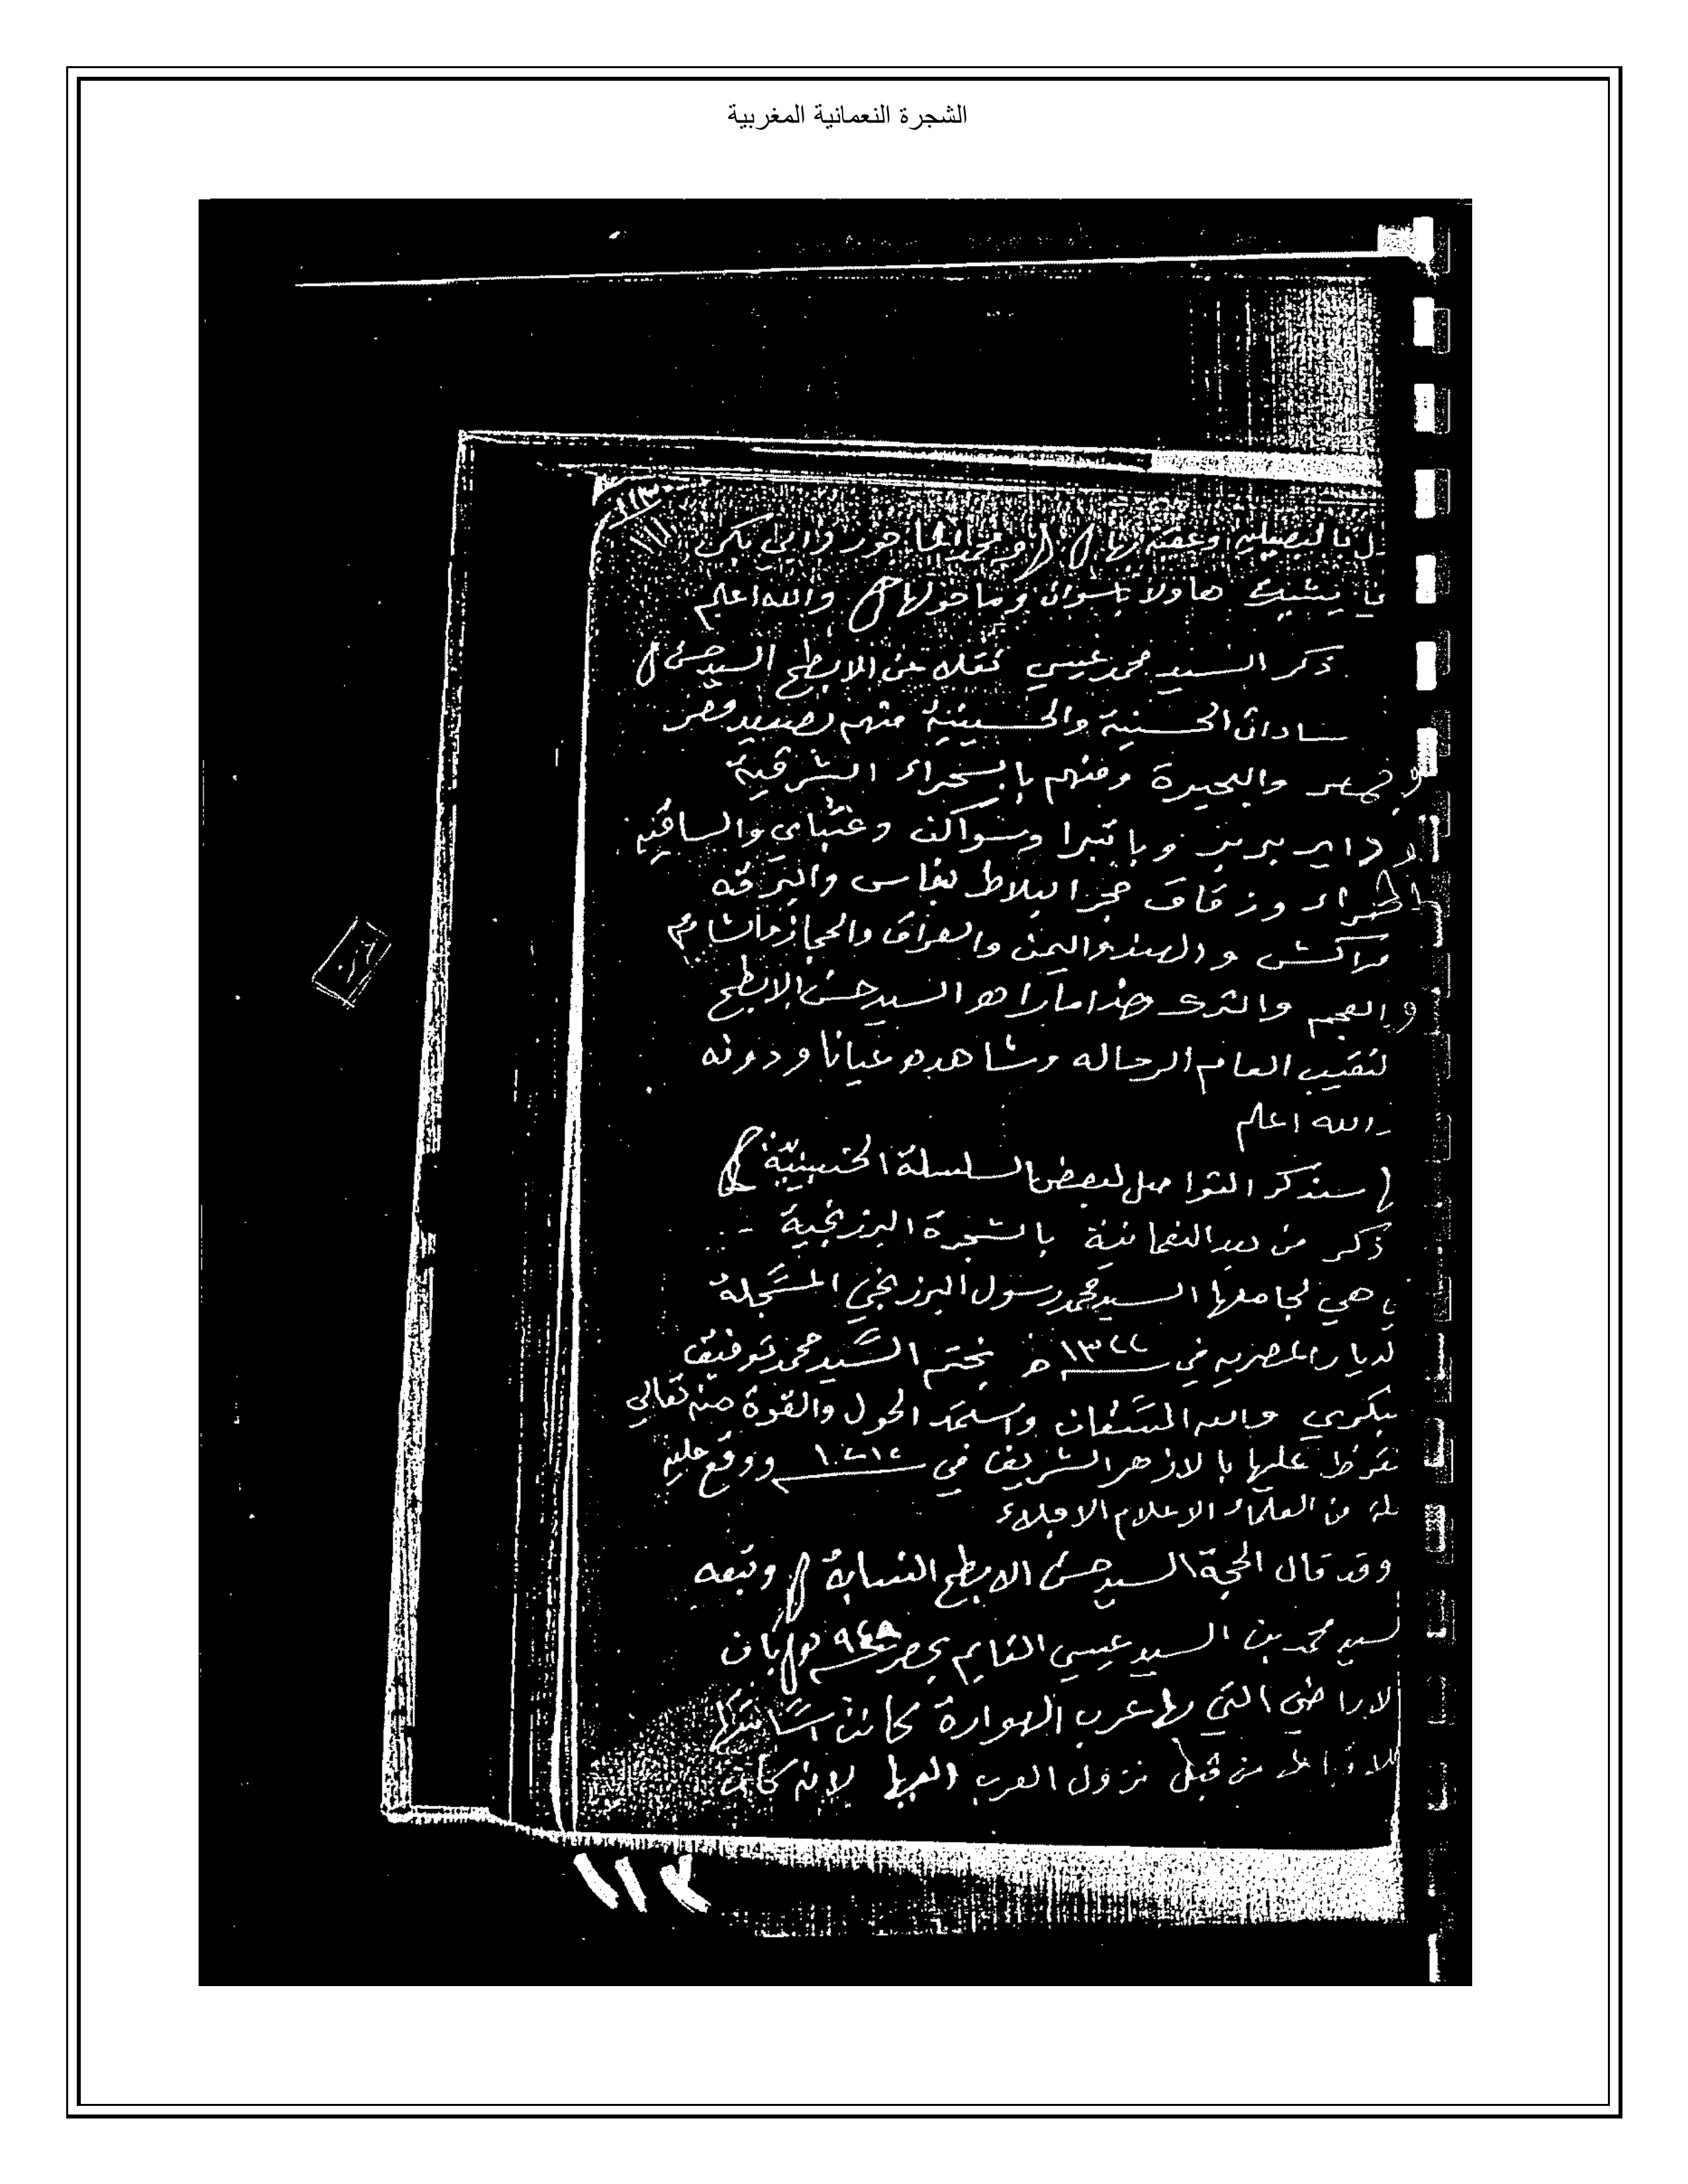 الشجرة النعمانية المغربية
١١٣
١١١
وعقبه بها ومحمد وابي بكر
هاولا باسوان وما حولها والله اعلم
ذكر السيد محمد عيسي نقله عن الابطح السيد حسن
سادات الحسنية والحسينية منهم بصعيد مصر
والبحيرة ومنهم بالسحراء الشرقية
وسواكن والساقية
الحمراء وزقاق حجر البلاط بفاس والبرقه
مراكش والهند واليمن والعراق والحجاز والشام
والعجم والترك هذا مارا هو السيد حسن الابطح
لنقيب العام الرحاله وشاهده عيانا ودونه
والله اعلم
سنذكر التواصل لبعض السلسلة الحسينية
ذكر من بعد النعمانية بالشجرة البرزنجية
هي لجامعها السيد محمد رسول البرزنجي المسجلة
لديار المصريه في ١٣٢٢ ه بختم السيد محمد توفيق
بكري والله المستعان واستمد الحول والقوة منه تعالي
عليها بالازهر الشريف في ووقع عليه
من العلماء الاعلام الاجلاء
وقد قال الحجة السيد حسن الابطح النسابة وتبعه
لسيد محمد بن السيد عيسي القايم بمصر بان
لاراضي التي بها عرب الهوارة كانت
من قبل نزول العرب اليها لانه كان
١١٢